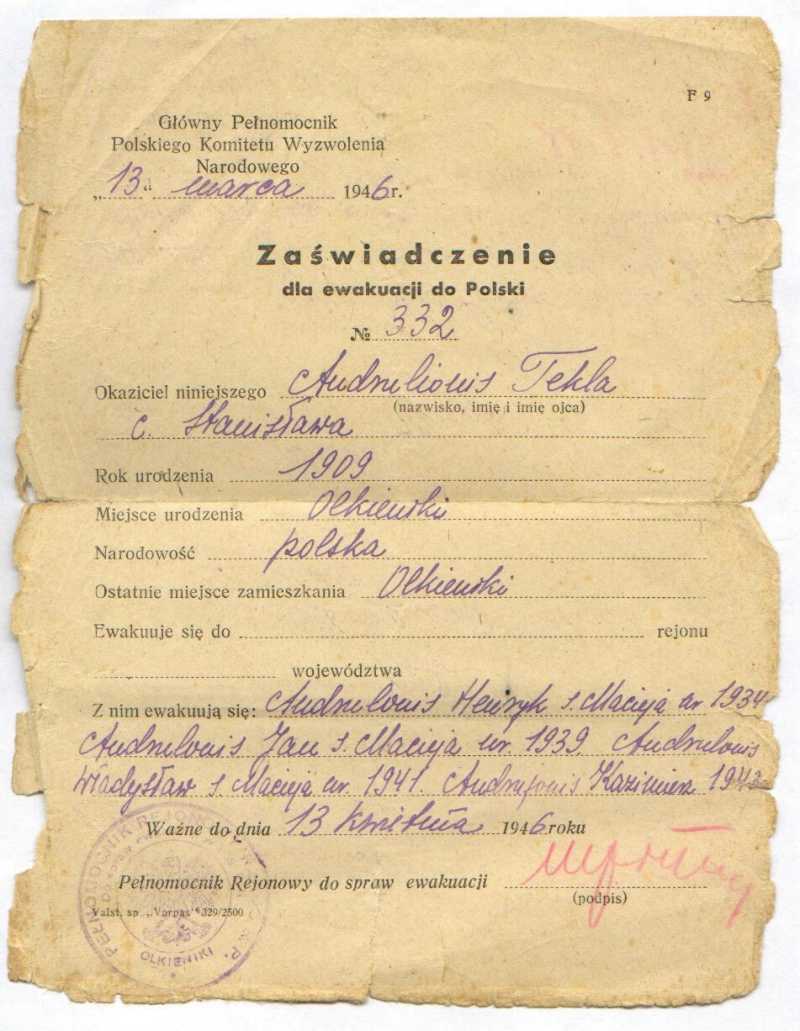 F 9
Główny Pełnomocnik
Polskiego Komitetu Wyzwolenia
Narodowego
„13" marca 1946 r.
Zaświadczenie
dla ewakuacji do Polski
№ 332
Okaziciel niniejszego Audzelionis Tekla
(nazwisko, imię i imię ojca)
c. Stanisława
Rok urodzenia 1909
Miejsce urodzenia Olkieniki
Narodowość polska
Ostatnie miejsce zamieszkania Olkieniki
Ewakuuje się do rejonu
województwa
Z nim ewakuują się: Audzelonis Henryk s. Macieja ur 1934
Audzelonis Jan s. Macieja ur. 1939 Audzelonis
Władysław s. Macieja ur. 1941. Audzejonis Kazimierz
Ważne do dnia 13 kwietnia 1946 roku
Pełnomocnik Rejonowy do spraw ewakuacji
(podpis)
Valst. sp. „Varpas" 329/2500
PEŁNOMOCNIK
OLKIENIKI